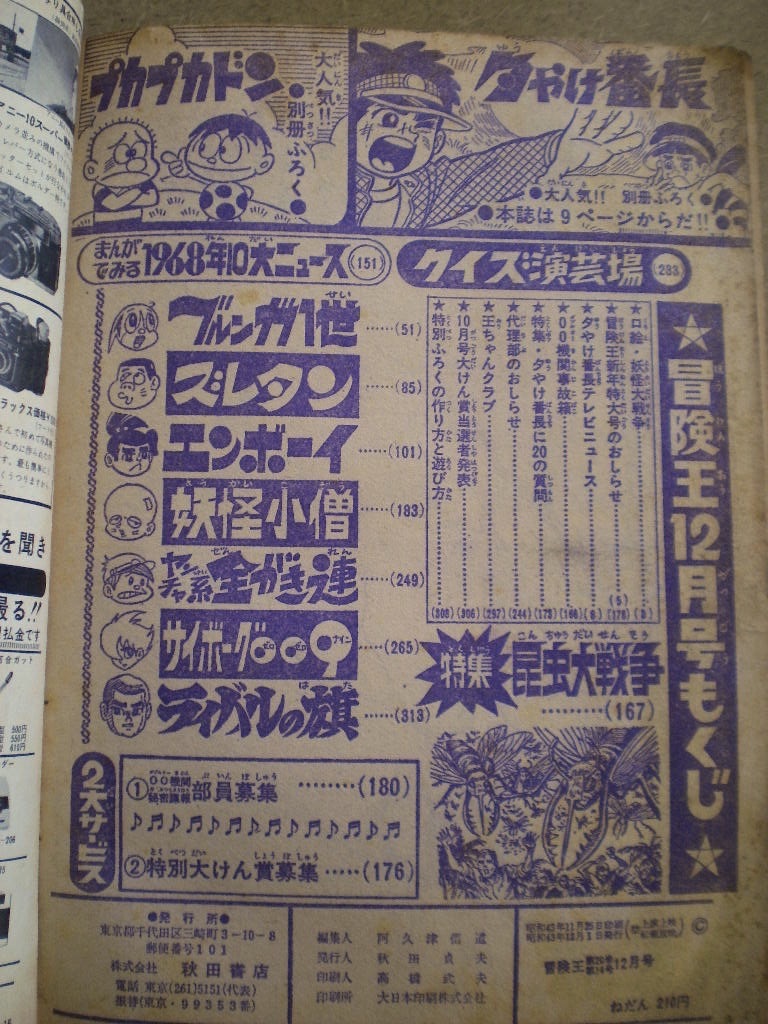 プカプカドン
大人気!!
●別冊ふろく●
夕やけ番長
●大人気!! 別冊ふろく
●本誌は9ページからだ!!
まんがでみる1968年10大ニュース(151)
クイズ演芸場(283)
★冒険王12月号もくじ★
ブルンガ1世……(51)
ズレタン……(85)
エンボーイ……(101)
妖怪小僧……(183)
ヤンチャ系全がき連……(249)
サイボーグ009……(265)
ライバルの旗……(313)
★口絵・妖怪大戦争
★冒険王新年特大号のおしらせ
★夕やけ番長テレビニュース
★00機関事故箱
★特集・夕やけ番長に20の質問
★代理部のおしらせ……(244)
★王ちゃんクラブ
★10月号大けん賞当選者発表
★特別ふろくの作り方と遊び方
特集 昆虫大戦争
……(167)
2大サービス
①00機関秘密諜報部員募集………(180)
②特別大けん賞募集……(176)
●発行所●
東京都千代田区三崎町3-10-8
郵便番号101
株式会社 秋田書店
電話 東京(261)5151(代表)
振替(東京・99353番)
編集人 阿久津信道
発行人 秋田貞夫
印刷人 高橋武夫
印刷所 大日本印刷株式会社
昭和43年11月25日印刷
昭和43年12月1日発行
©
冒険王
12月号
ねだん 210円
を聞き
最る!!
払金です